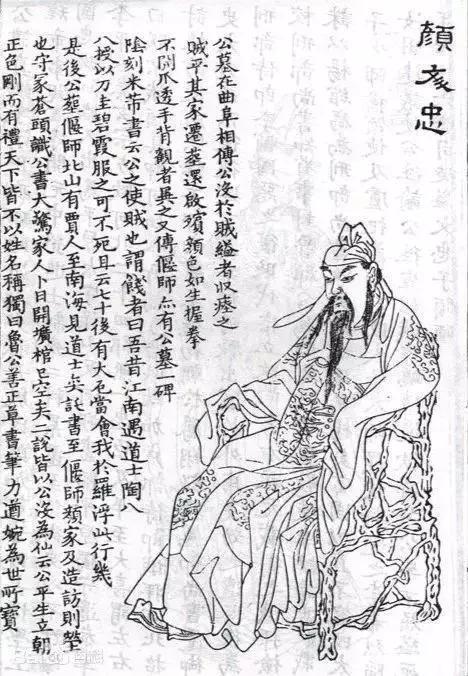 顏文忠
公墓在曲阜相傳公沒於賊縊者收瘞之
賊平其家遷葬還啟殯顏色如生握拳
不開爪透手背觀者異之又傳偃師亦有公墓一碑
陰刻米芾書云公之使賊也謂餞者曰吾昔江南遇道士陶八
八授以刀圭碧霞服之可不死且云七十後有大厄當會我於羅浮此行幾
是後公葬偃師北山有賈人至南海見道士奕託書至偃師顏家及造訪則塋
也守冢蒼頭識公書大驚家人卜日開壙棺已空矣二說皆以公沒為仙云公平生立朝
正色剛而有禮天下皆不以姓名稱獨曰魯公善正草書筆力遒婉為世所寶